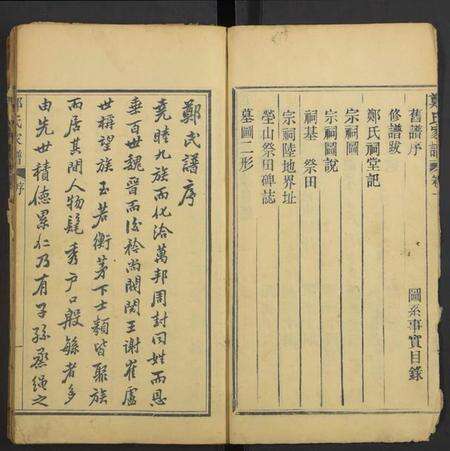 鄭氏家譜 卷
圖系事實目錄
舊譜序
修譜跋
鄭氏祠堂記
宗祠圖
宗祠圖說
祠基 祭田
宗祠陸地界址
塋山祭田碑誌
墓圖二形
鄭氏譜序
堯睦九族而化洽萬邦周封同姓而恩
垂百世魏晉而後衿尚閥閱王謝崔盧
世稱望族至若衡茅下士類皆聚族
而居其間人物髦秀戶口殷繁者多
由先世積德累仁乃有子孫烝繩之
鄭氏家譜 序